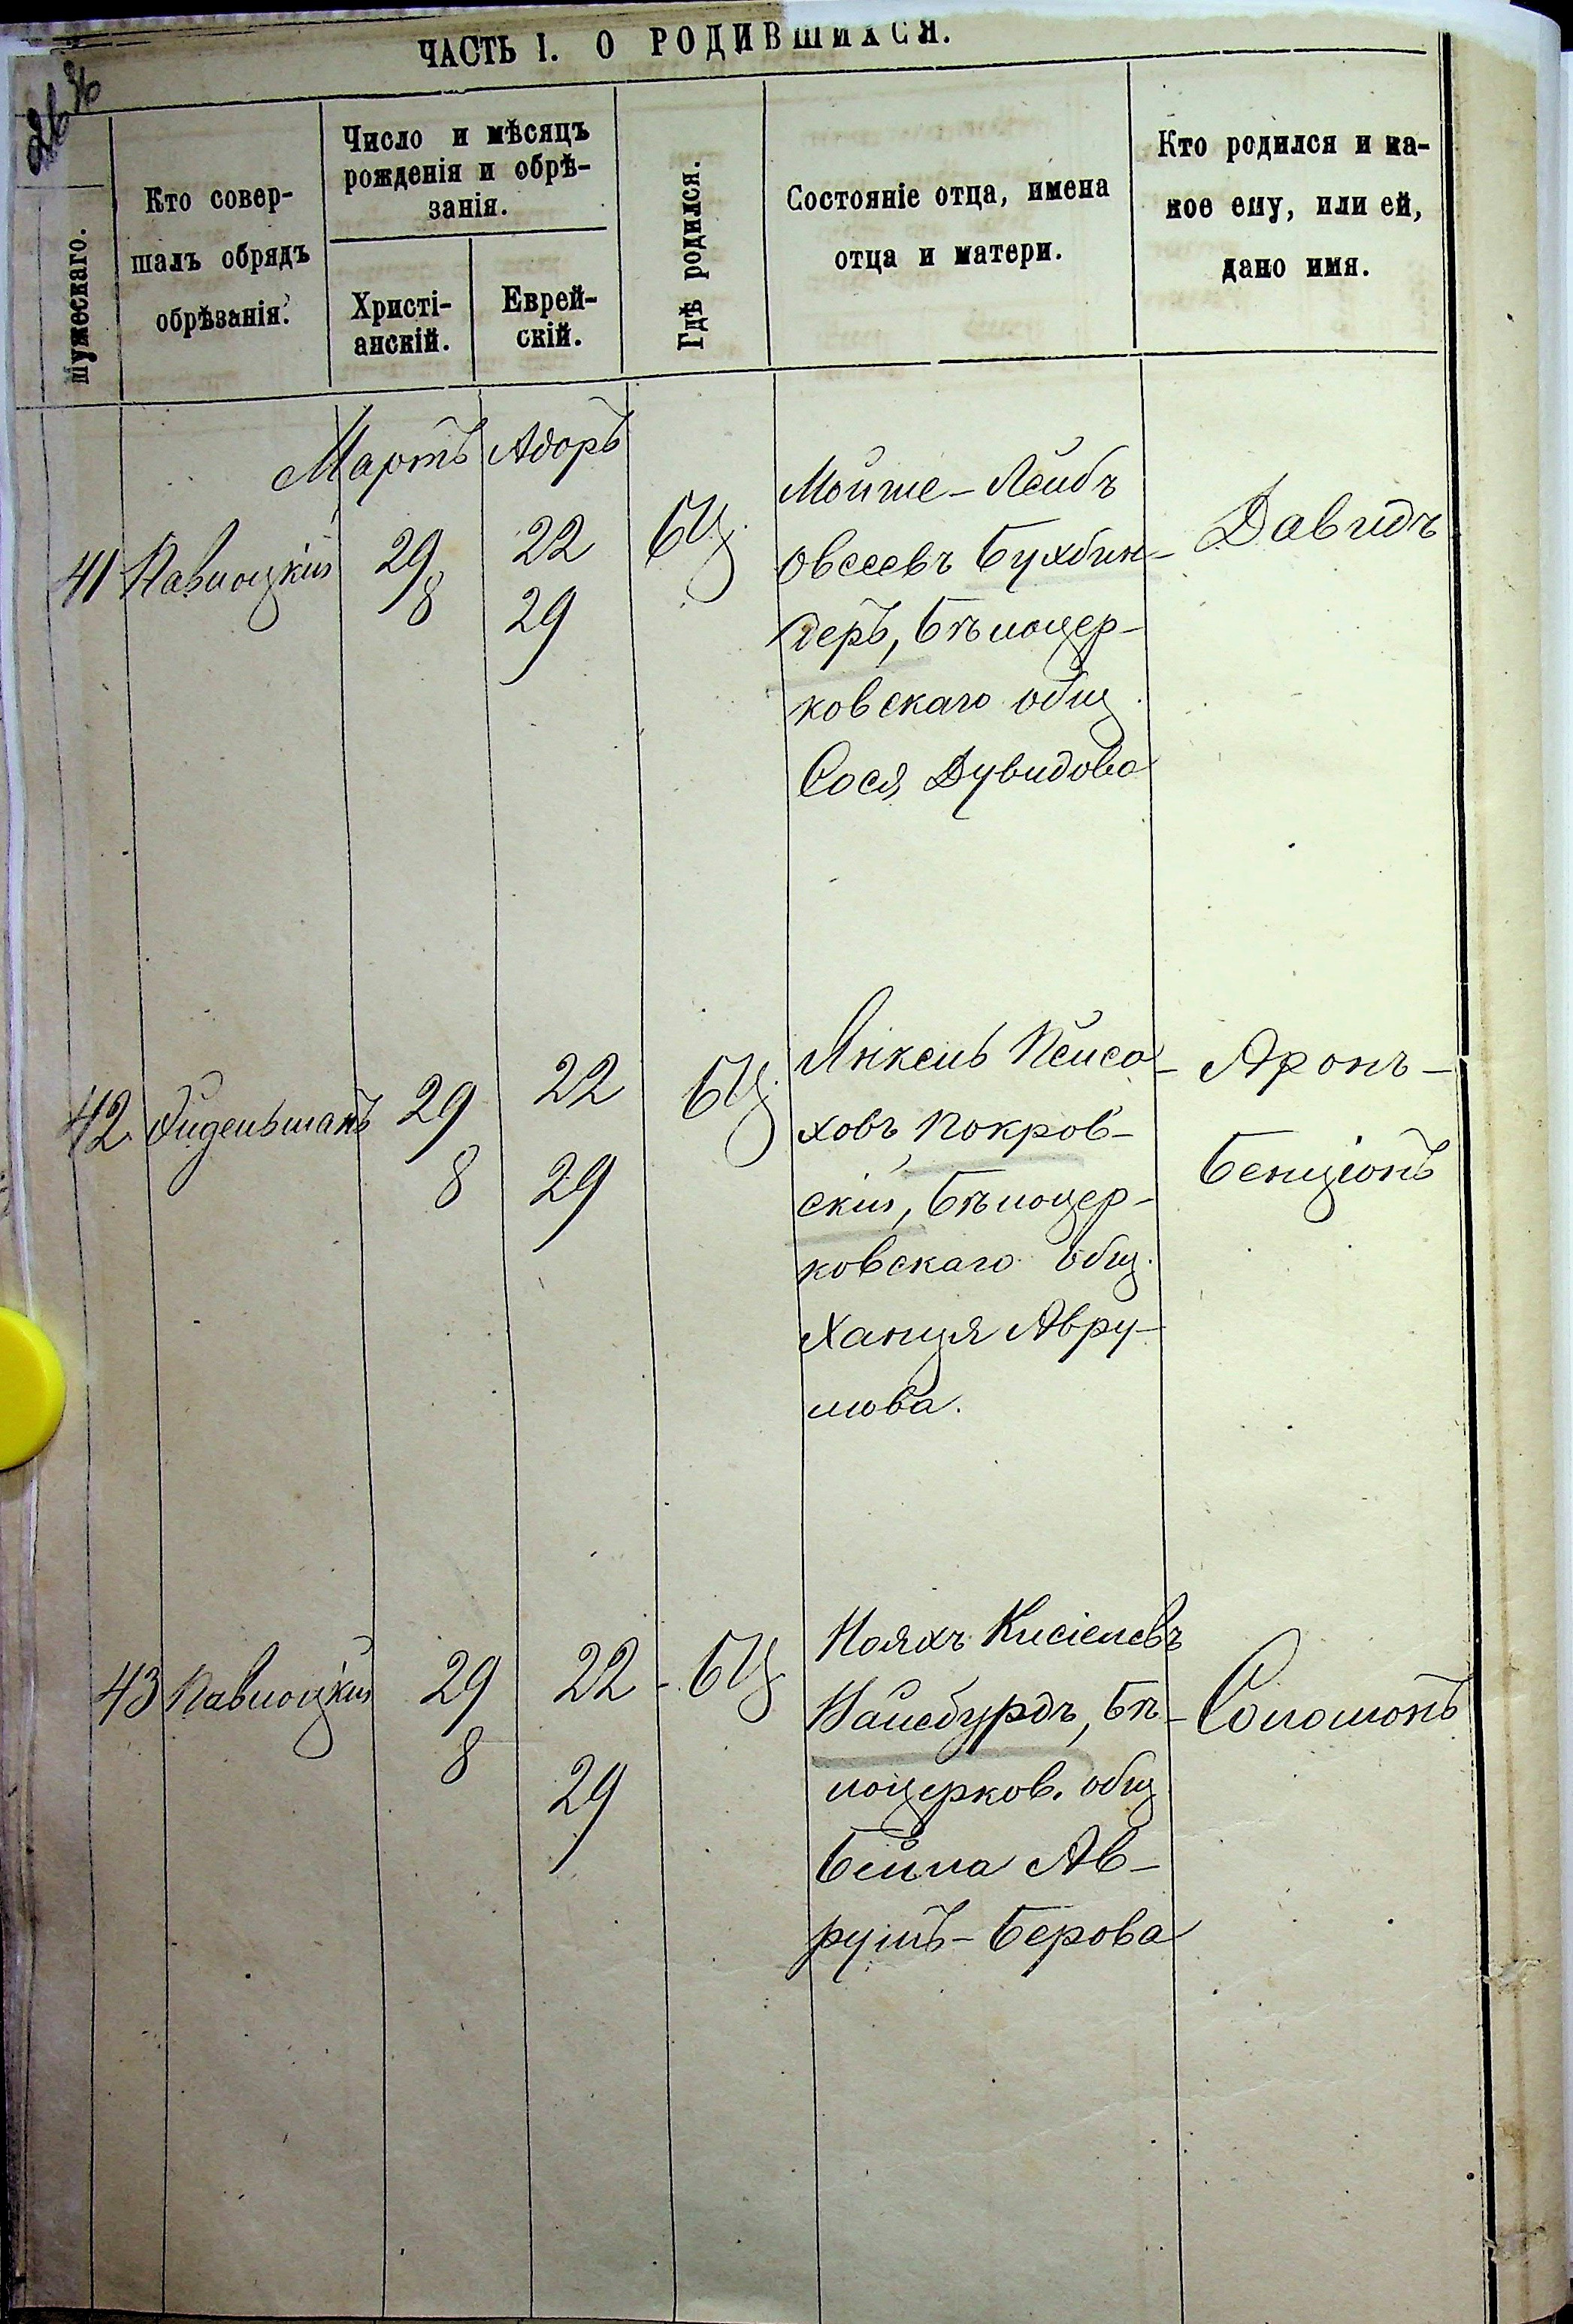 ЧАСТЬ I. О РОДИВШИХСЯ.
Мужескаго.
Кто совер-
шалъ обрядъ
обрѣзанія.
Число и мѣсяцъ
рожденія и обрѣ-
занія.
Христі-
анскій.
Еврей-
скій.
Гдѣ родился.
Состояніе отца, имена
отца и матери.
Кто родился и ка-
кое ему, или ей,
дано имя.
Мартъ Адоръ
41 Павлоцкій 29 22 БЦ.
8 29
Мойше-Лейбъ
Овсеевъ Бухбин-
деръ, Бѣлоцер-
ковскаго общ.
Сося Дувидова
Давидъ
42 29 22 БЦ.
8 29
Янкель Пейса-
ховъ Покров-
скій, Бѣлоцер-
ковскаго общ.
Ханця Авру-
мова.
Аронъ-
Бенціонъ
43 Павлоцкій 29 22 БЦ
8 29
Нояхъ Кисіелевъ
Вайсбурдъ, Бѣ-
лоцерков. общ
Бейла Ав-
румъ-Берова
Соломонъ